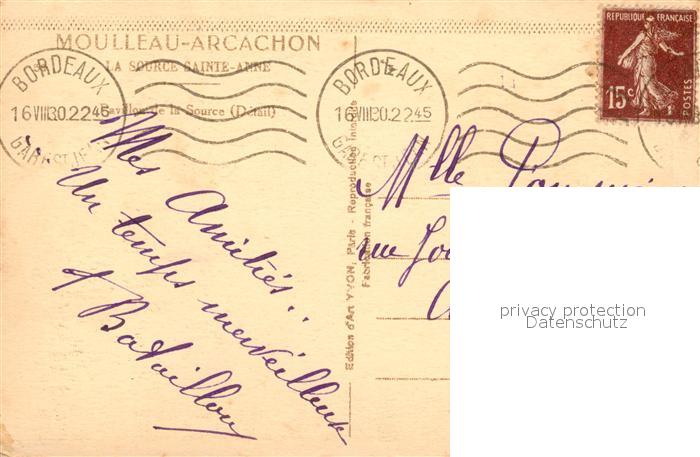 MOULLEAU-ARCACHON
LA SOURCE SAINTE-ANNE
Pavillon de la Source (Détail)
BORDEAUX
16 VIII 30. 22 45
GARE ST JEAN
BORDEAUX
16 VIII 30. 22 45
REPUBLIQUE FRANÇAISE
15c
POSTES
Mes Amitiés..
Un temps merveilleux
Bataillou
Edition d'Art YVON, Paris - Reproduction Interdite
Fabrication française
Mlle
rue
privacy protection
Datenschutz